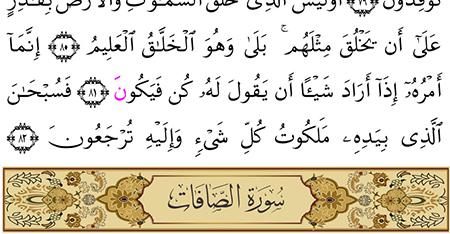 تُوقِدُونَ ﴿٧٩﴾ أَوَلَيْسَ ٱلَّذِى خَلَقَ ٱلسَّمَٰوَٰتِ وَٱلْأَرْضَ بِقَٰدِرٍ
عَلَىٰٓ أَن يَخْلُقَ مِثْلَهُم ۚ بَلَىٰ وَهُوَ ٱلْخَلَّٰقُ ٱلْعَلِيمُ ﴿٨٠﴾ إِنَّمَآ
أَمْرُهُۥٓ إِذَآ أَرَادَ شَيْـًٔا أَن يَقُولَ لَهُۥ كُن فَيَكُونَ ﴿٨١﴾ فَسُبْحَٰنَ
ٱلَّذِى بِيَدِهِۦ مَلَكُوتُ كُلِّ شَىْءٍ وَإِلَيْهِ تُرْجَعُونَ ﴿٨٢﴾
سُورَةُ الصَّافَّاتِ